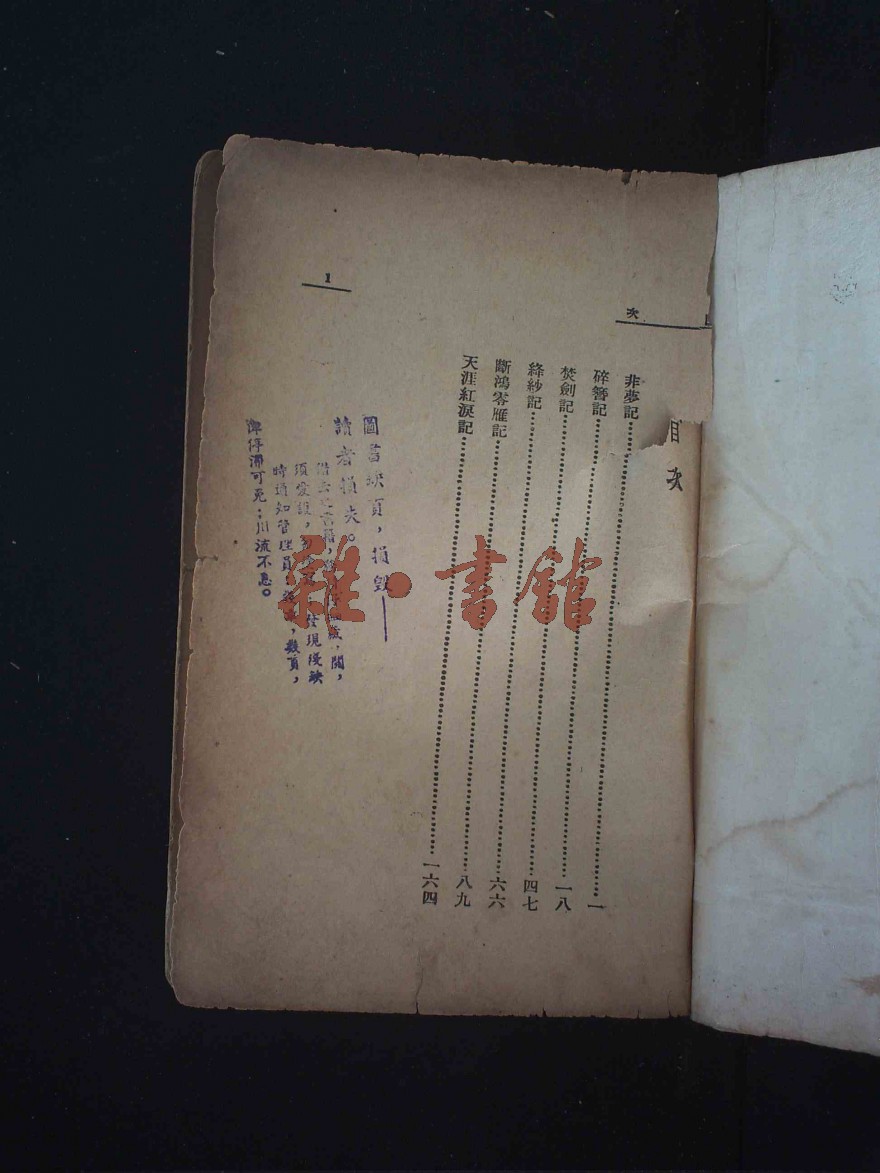 次
目次
非夢記……一
碎簪記……一八
焚劍記……四七
絳紗記……六六
斷鴻零雁記……八九
天涯紅淚記……一六四
1
圖書缺頁，損毀——
讀者損失。
須愛護，
發現後缺
時通知管理員
數頁，
俾停滯可免；川流不息。
雜·書館